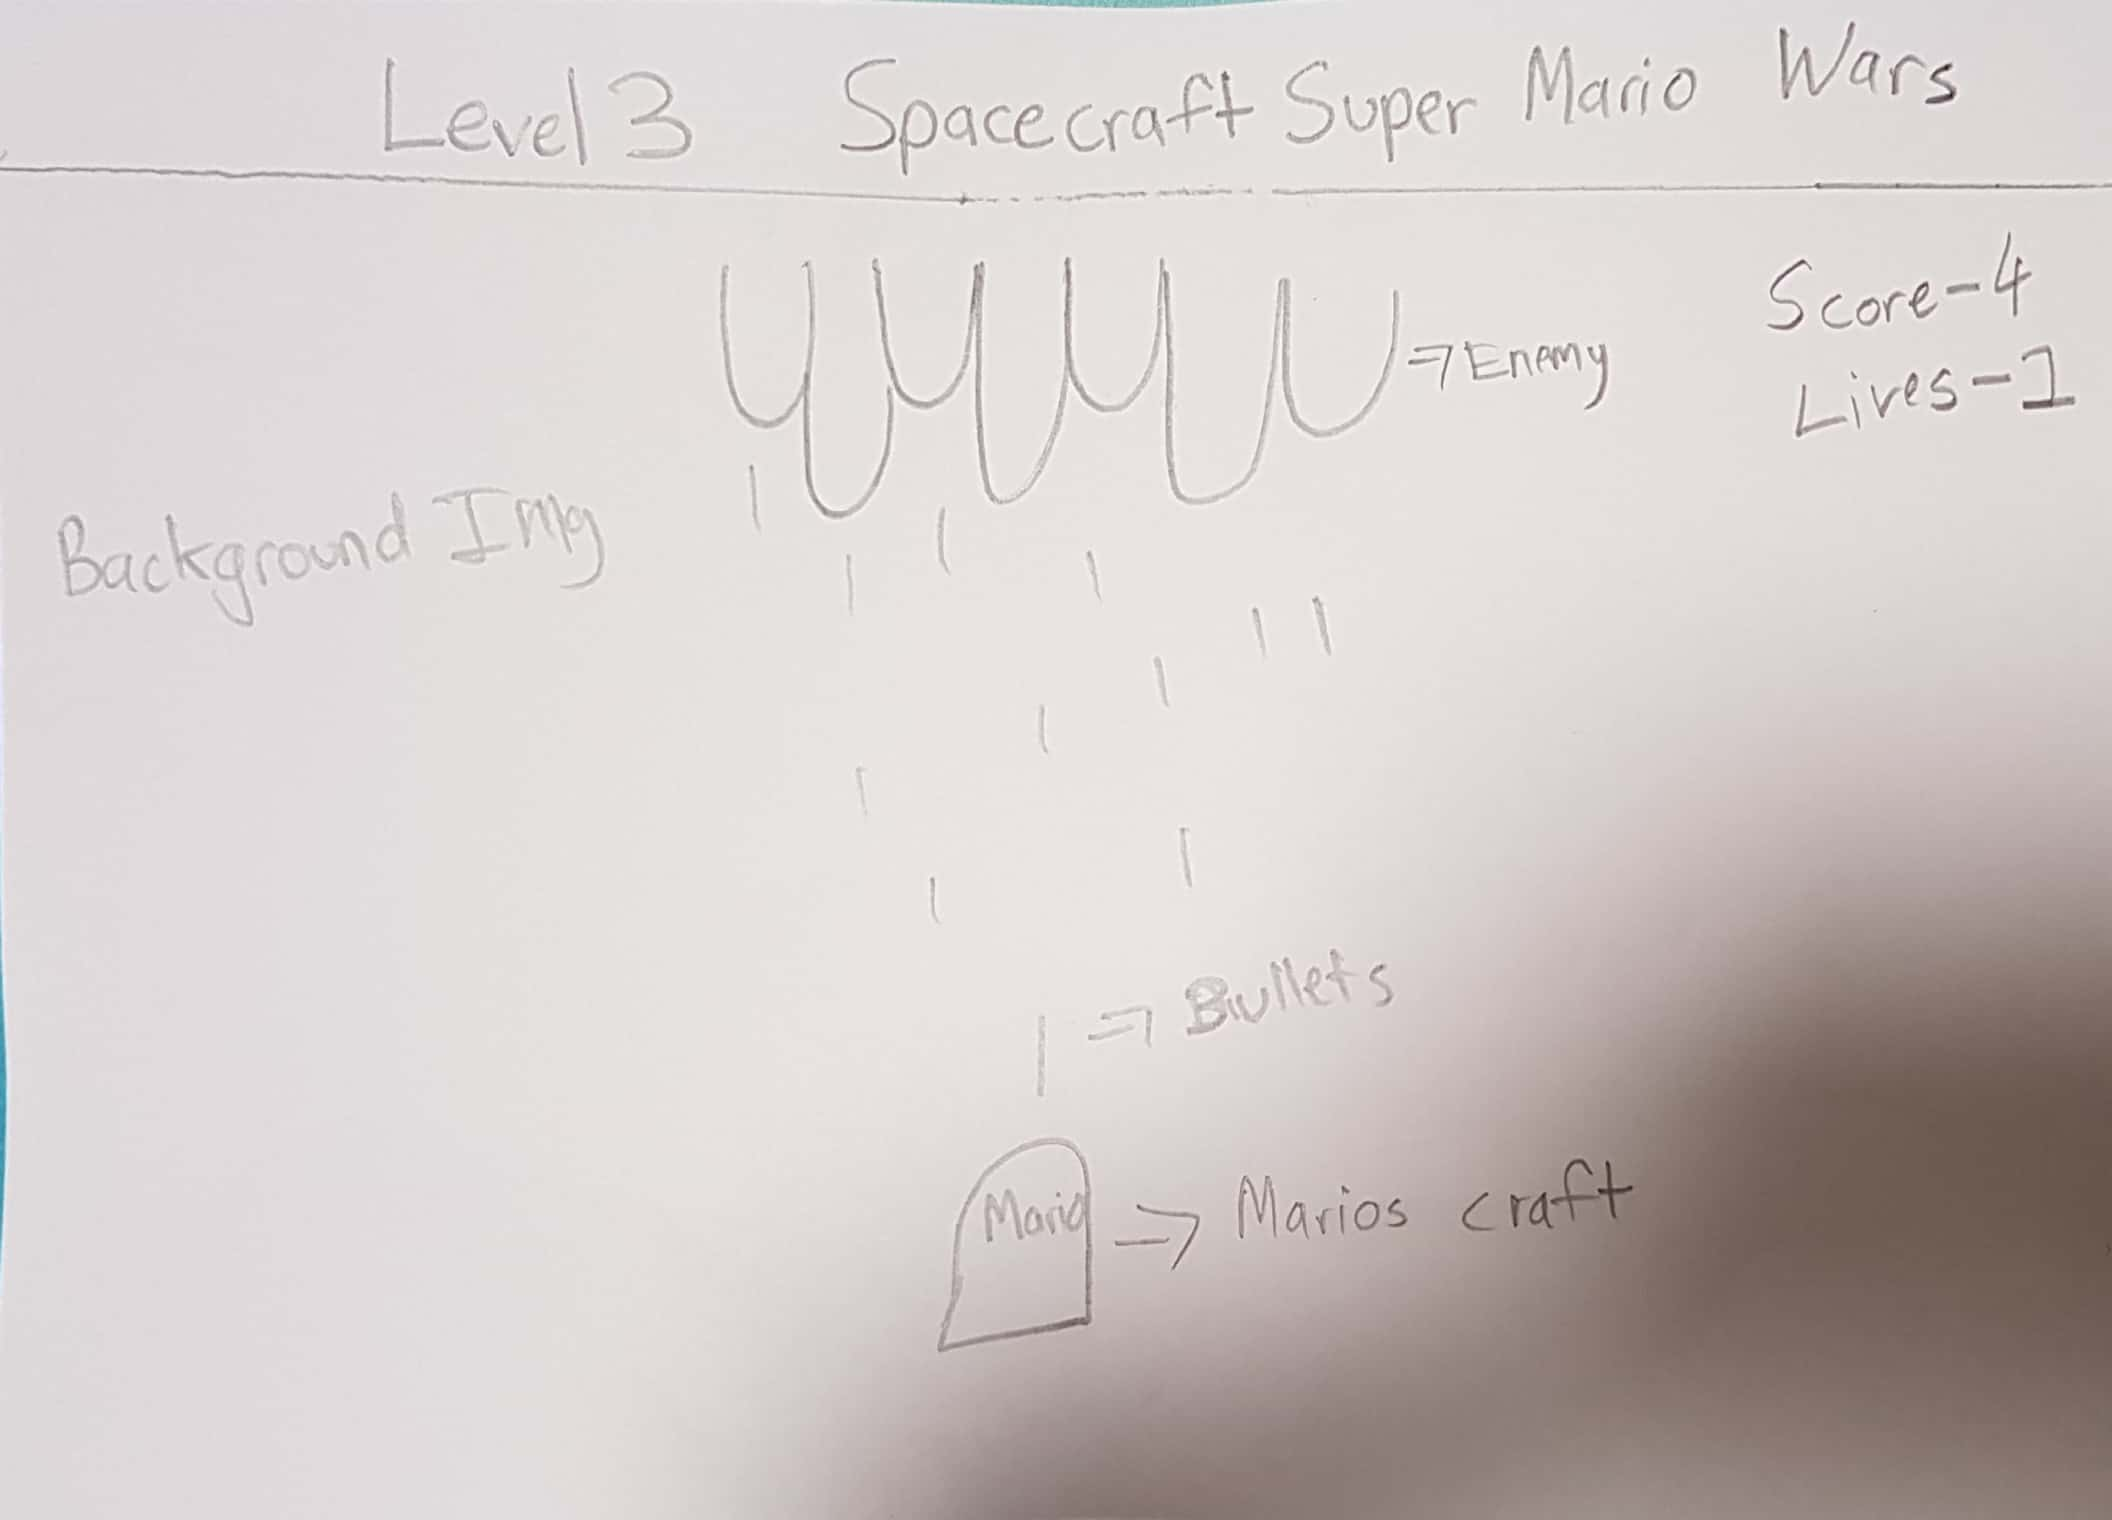 Level 3 Spacecraft Super Mario Wars
Score-4
⇒ Enemy
Lives-1
Background Img
⇒ Bullets
Mario ⇒ Marios craft